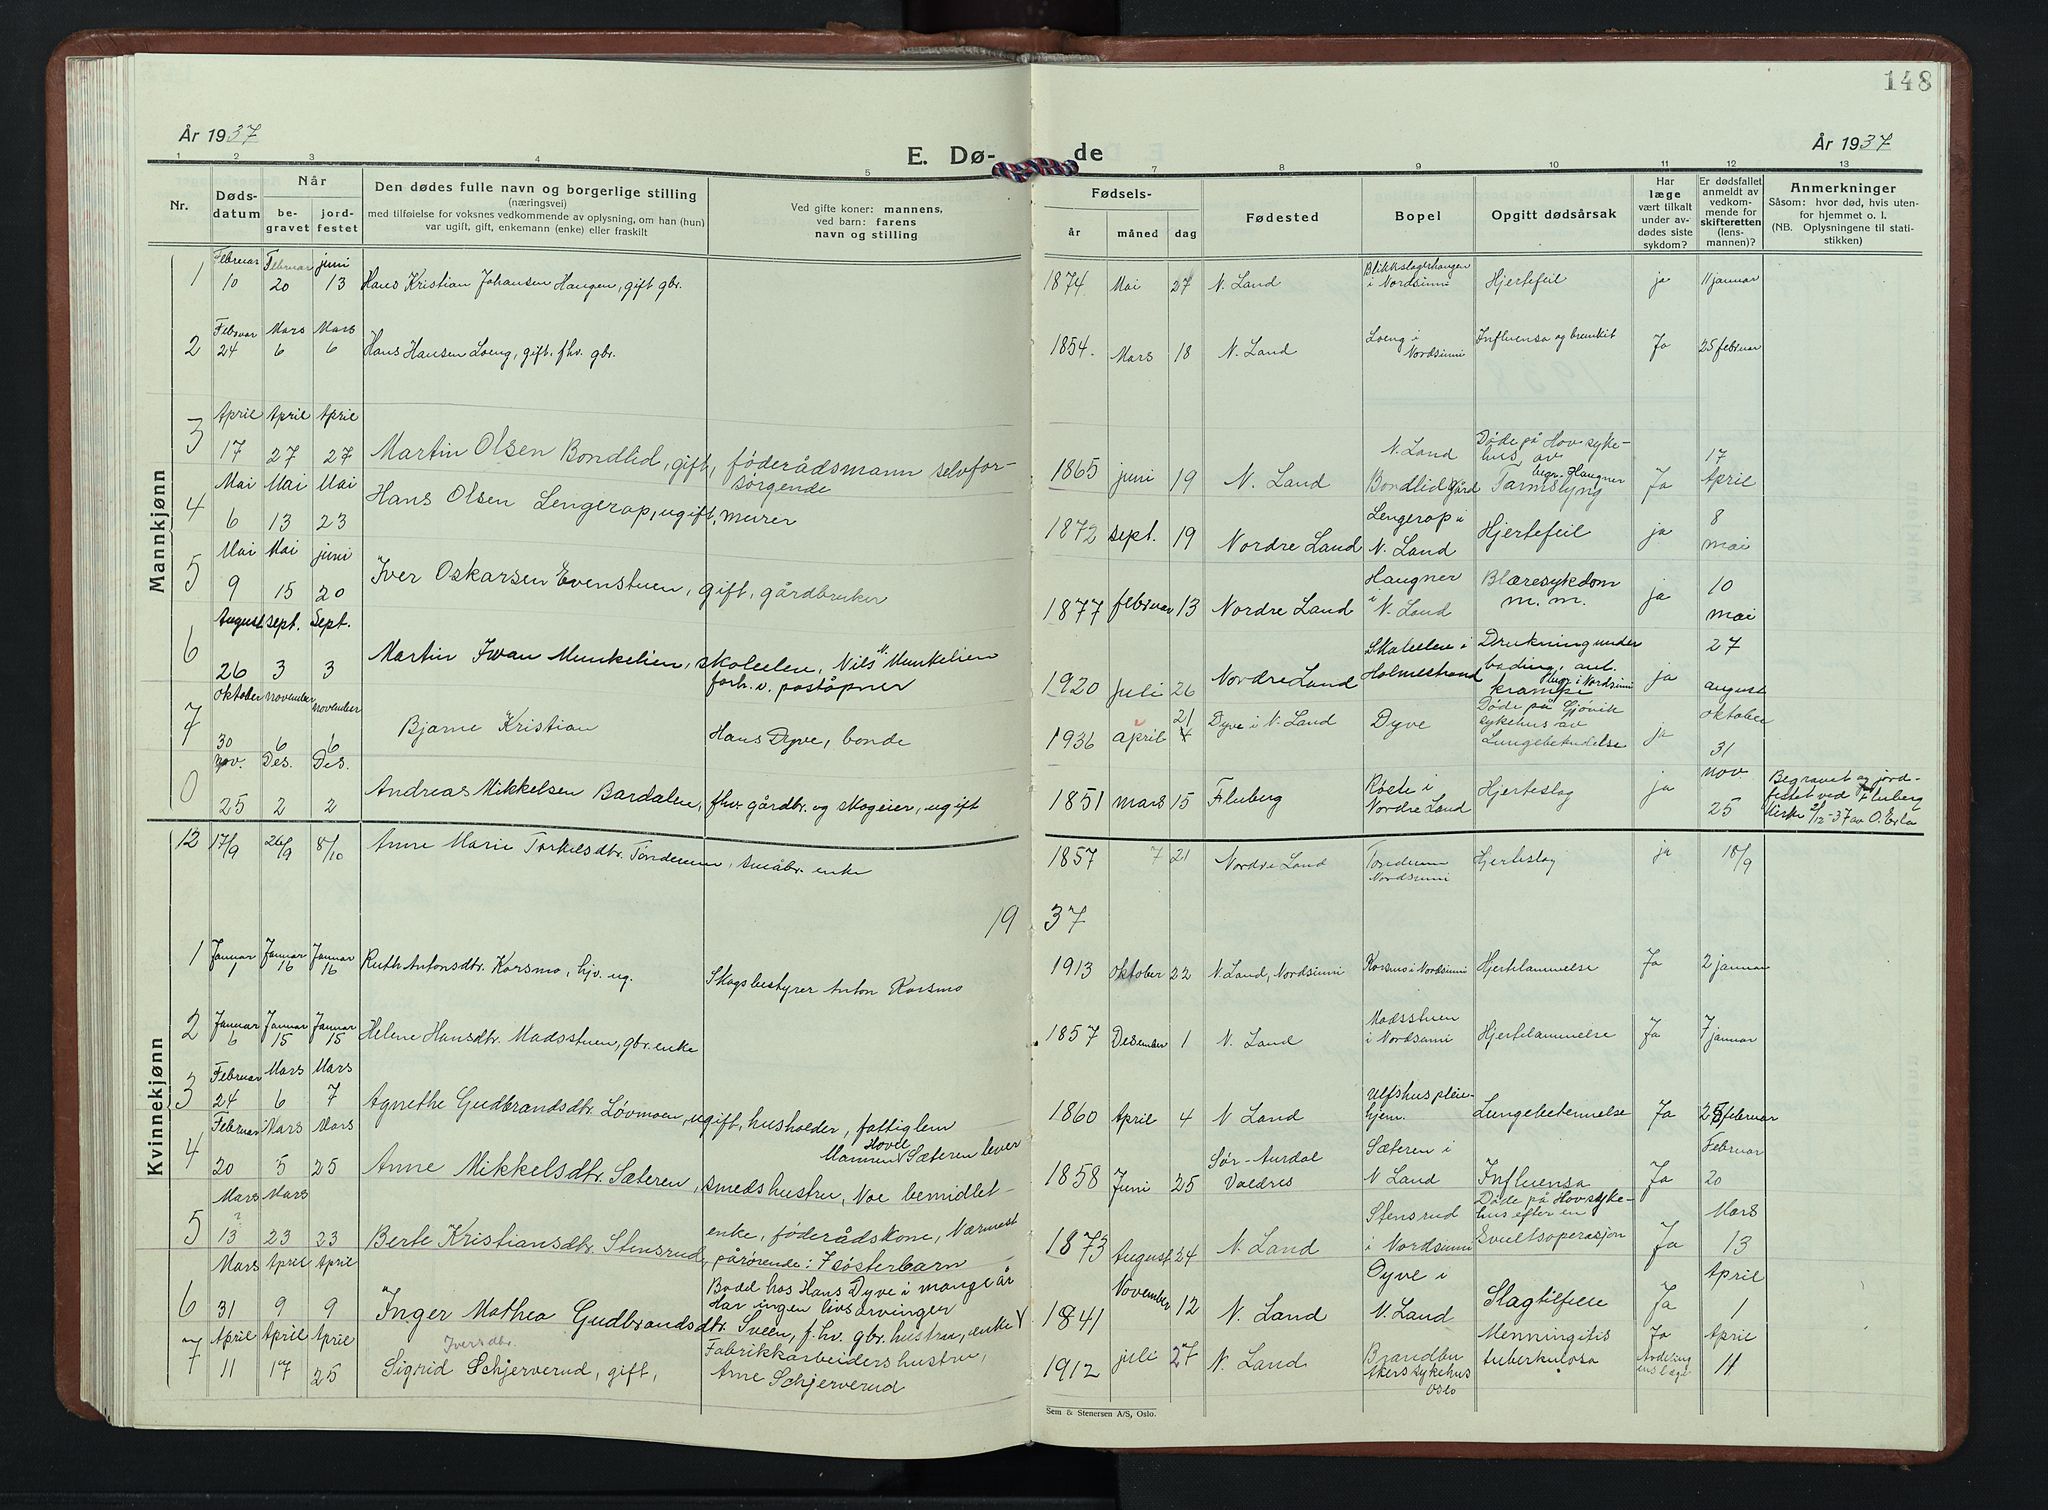 148
År 1937
E. Dø-
de
År 1937
1 2 3 4 5 7 8 9 10 11 12 13
Nr.
Døds-
datum
Når
be-
gravet
jord-
festet
Den dødes fulle navn og borgerlige stilling
(næringsvei)
med tilføielse for voksnes vedkommende av oplysning, om han (hun)
var ugift, gift, enkemann (enke) eller fraskilt
Ved gifte koner: mannens,
ved barn: farens
navn og stilling
Fødsels-
år måned dag
Fødested
Bopel
Opgitt dødsårsak
Har
læge
vært tilkalt
under av-
dødes siste
sykdom?
Er dødsfallet
anmeldt av
vedkom-
mende for
skifteretten
(lens-
mannen)?
Anmerkninger
Såsom: hvor død, hvis uten-
for hjemmet o. l.
(NB. Oplysningene til stati-
stikken)
Mannkjønn
1 Februar 10 Februar 20 juni 13 Hans Kristian Johansen Haugen, gift gbr. 1874 Mai 27 N. Land Blikkslagerhaugen i Nordsinni Hjertefeil ja 11 januar
2 Februar 24 Mars 6 Mars 6 Hans Hansen Loeng, gift, fhv. gbr. 1854. Mars 18 N. Land Loeng i Nordsinni Influensa og bronkit Ja 25 februar
3 April 17 April 27 April 27 Martin Olsen Bondlid, gift, föderådsmann selvfor-
sörgende 1865 juni 19 N. Land N. Land Bondlid Gård Døde på Hov syke-
hus av Tarmslyng begr. Haugner Ja 17 April
4 Mai 6 Mai 13 Mai 23 Hans Olsen Lengerop, ugift, murer 1872 sept. 19 Nordre Land Lengerop i N. Land Hjertefeil ja 8 mai
5 Mai 9 Mai 15 juni 20 Iver Oskarsen Evenstuen, gift, gårdbruker 1877 februar 13 Nordre Land Haugner i N. Land Blæresykdom m. m. ja 10 mai
6 August 26 sept. 3 Sept. 3 Martin Iwan Munkelien, skoleelev, Nils N. Munkelien
forh.v. poståpner 1920 juli 26 Nordre Land Skoleelev i Holmestrand Drukning under
bading, ant. krampe begr. i Nordsinni ja 27 august
7 Oktober 30 november 6 november 6 Bjarne Kristian Hans Dyve, bonde 1936 april 21 Dyve i N. Land Dyve Døde på Gjövik
sykehus av Lungebetendelse ja oktober 31
0 Nov. 25 Des. 2 Des. 2 Andreas Mikkelsen Bardalen, fhv. gårdbr. og skogeier, ugift 1851 mars 15 Fluberg Röste i Nordre Land Hjerteslag ja nov 25 Begravet og jord-
festet ved Fluberg
kirke 2/12-37 av O.
Kvinnekjønn
12 17/9 26/9 8/10 Anne Marie Torkelsdtr. Tönderum, småbr. enke 1857 7 21 Nordre Land Nordsinni Hjerteslag ja 18/9
1937
1 Januar 1 Januar 16 Januar 16 Ruth Antonsdtr. Korsmo, hjv. ug. Skogsbestyrer Anton Korsmo 1913 Oktober 22 N. Land, Nordsinni Korsmo i Nordsinni Hjertelammelse Ja 2 januar
2 Januar 6 Januar 15 Januar 15 Helene Hansdtr. Madsstuen, gbr. enke 1857 Desember 1 N. Land Madsstuen i Nordsinni Hjertelammelse Ja 7 januar
3 Februar 24 Mars 6 Mars 7 Agnethe Gudbrandsdtr. Lövmoen, ugift, husholder, fattiglem 1860 April 4 N Land Ulfshus pleie-
hjem. Lungebetennelse Ja 25 februar
4 Februar 20 Mars 5 Mars 25 Anne Mikkelsdtr. Sæteren, smedshustru, Noe bemidlet Mannen Hovel Sæteren lever 1858 Juni 25 Sør-Aurdal Valdres Sæteren i N Land Influensa Ja Februar 20
5 Mars ? 13 Mars 23 23 Berte Kristiansdtr. Stensrud, enke, föderådskone, Nærmest
pårørende: 7 søsterbarn 1873 August 24 N. Land Stensrud i Nordsinni Døde på Hov syke-
hus efter en Svultsoperasjon Ja Mars 13
6 Mars 31 April 9 April 9 Inger Mathea Gudbrandsdtr. Sveen, f.hv. gbr. hustru, enke
Bodd hos Hans Dyve i mange år
Har ingen livsarvinger 1841 November 12 N. Land Dyve i N. Land Slagtilfelle Ja April 1
7 April 11 April 17 April 25 Sigrid Iversdtr. Schjerverud, gift, Fabrikkarbeiders hustru,
Arne Schjerverud 1912 juli 27 N. Land Brandbu Akers sykehus Oslo Menningitis
tuberkulosa Ja Avdeling
ens læge April 11
Sem & Stenersen A/S, Oslo.